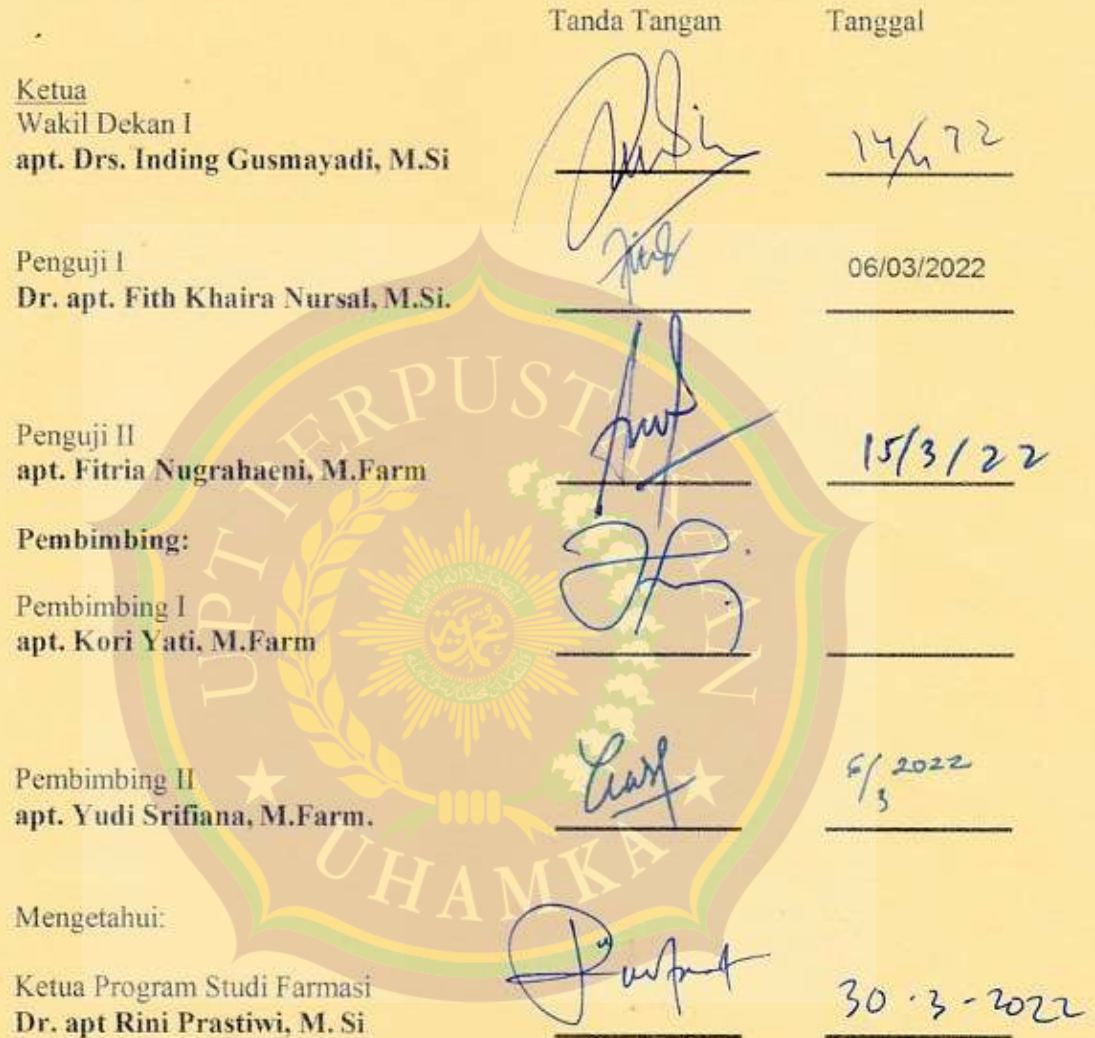 Tanda Tangan Tanggal
Ketua
Wakil Dekan I
apt. Drs. Inding Gusmayadi, M.Si
Penguji I
Dr. apt. Fith Khaira Nursal, M.Si. 06/03/2022
Penguji II
apt. Fitria Nugrahaeni, M.Farm 15/3/22
Pembimbing:
Pembimbing I
apt. Kori Yati, M.Farm
Pembimbing II
apt. Yudi Srifiana, M.Farm. 6/3 2022
Mengetahui:
Ketua Program Studi Farmasi
Dr. apt Rini Prastiwi, M. Si 30-3-2022
UPT PERPUSTAKAAN
UHAMKA